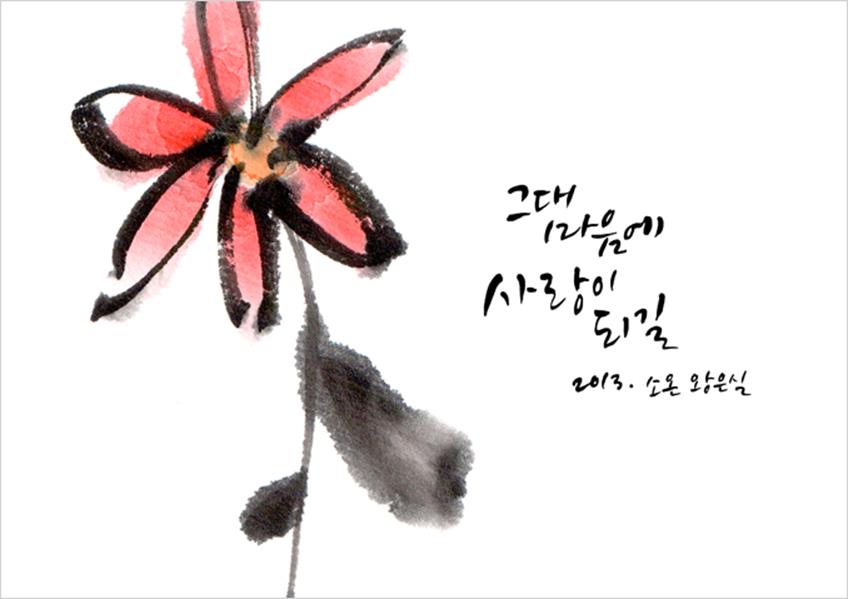 그대
마음에
사랑이
되길
2013. 소온 왕은실